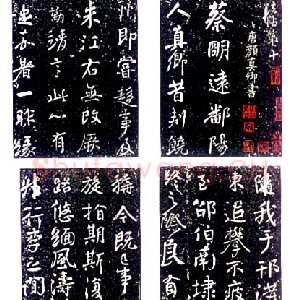 唐顏真卿書
蔡明遠鄱陽
人真卿昔刺饒
州即嘗趨事及
來江右無改厥
勤靖言此心有
足嘉者一昨緣
隨我于邗溝
東追攀不疲
至邵伯南埭
終之際良有
稱今既已事
旋指期斯復
路悠緬風濤
然行李之間